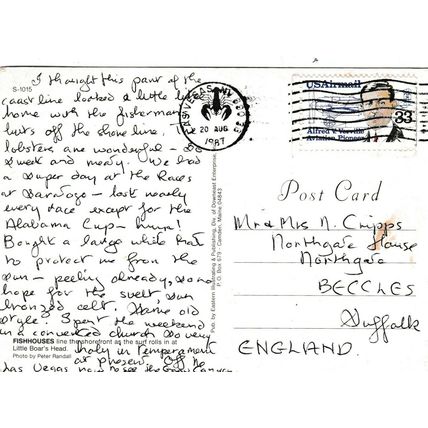 S-1015
I thought this part of the
coast line looked a little like
home with the fisherman
huts off the shore line.
lobsters are wonderful - so
sweet and meaty. We had
a super day at the Races
at Saratoga - lost nearly
every race except for the
Alabama Cup - hurra!
Bought a large white hat
to protect me from the
sun - peeling already, so no
hope for the svelt, sun
bronzed celt. Same old
style. Spent the weekend
in a converted church so very
holy in temperament
at present. Off to
Las Vegas now to see the Grand Canyon
FISHHOUSES line the shorefront as the surf rolls in at
Little Boar's Head.
Photo by Peter Randall
Pub. by Eastern Illustrating & Publishing, Div. of Downeast Enterprise,
P.O. Box 679 - Camden, Maine 04843
LAS VEGAS, NV
20 AUG
1987
USAirmail
33
Alfred V. Verville
Aviation Pioneer
Post Card
Mr & Mrs N. Cripps
Northgate House
Northgate
BECCLES
Suffolk
ENGLAND.